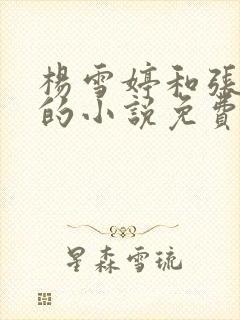 楊雪婷和張
的小說免費
星森雪琉